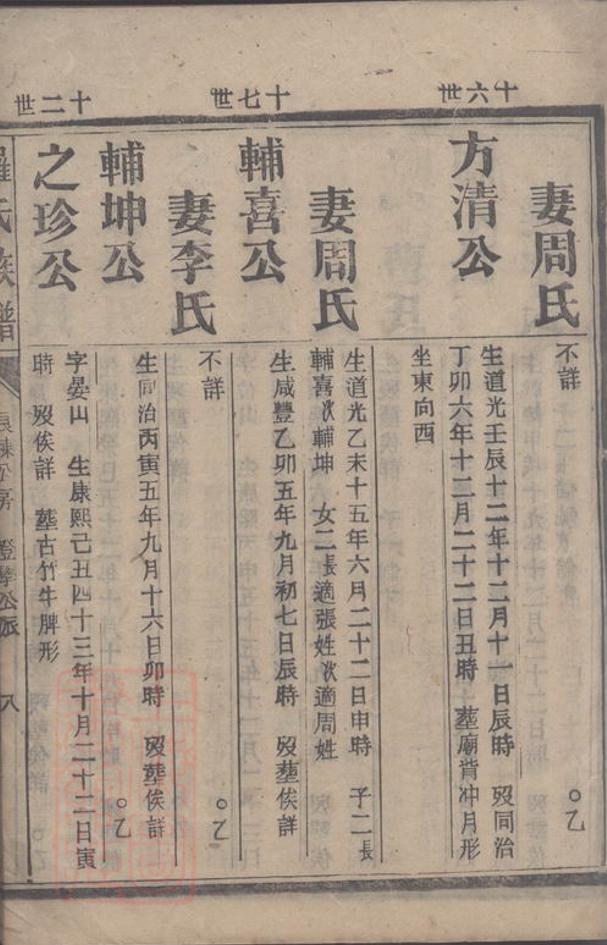 十六世
十七世
十二世
妻周氏
不詳
○乙
方清公
生道光壬辰十二年十二月十一日辰時 歿同治
丁卯六年十二月二十二日丑時 塟廟背冲月形
坐東向西
妻周氏
生道光乙未十五年六月二十二日申時 子二長
輔喜次輔坤 女二長適張姓次適周姓
輔喜公
生咸豐乙卯五年九月初七日辰時 歿塟俟詳
妻李氏
不詳
○乙
輔坤公
生同治丙寅五年九月十六日卯時 歿塟俟詳
○乙
之珍公
字晏山 生康熙己丑四十三年十月二十二日寅
時 歿俟詳 塟古竹牛脾形
羅氏族譜
公房 澄學公派
八